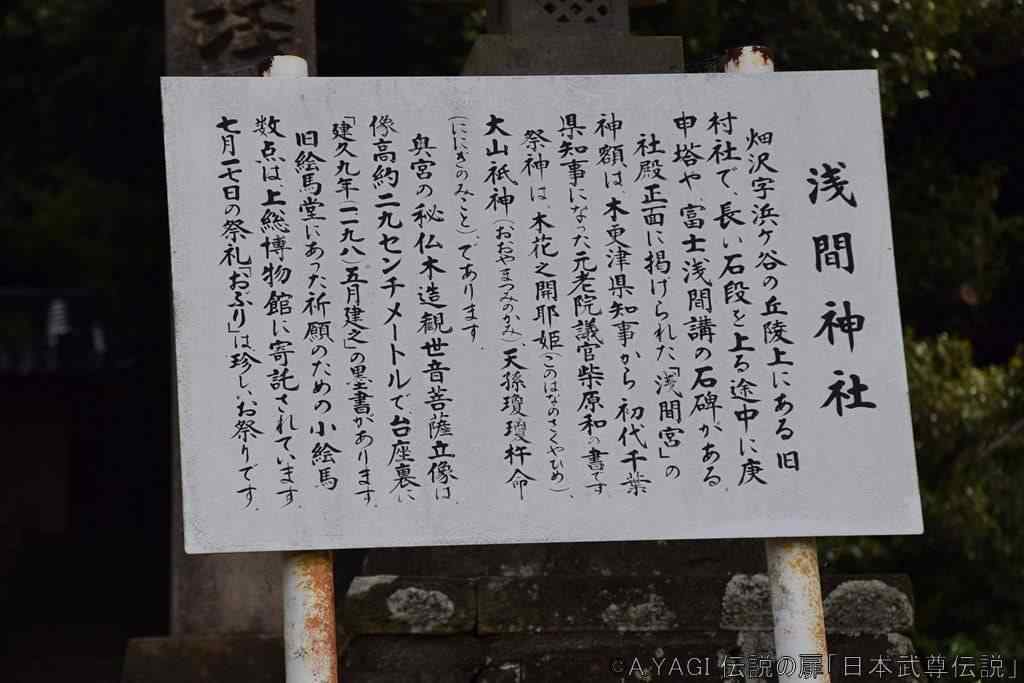 浅間神社
畑沢字浜ケ谷の丘陵上にある旧
村社で、長い石段を上る途中に庚
申塔や、富士浅間講の石碑がある。
社殿正面に掲げられた「浅間宮」の
神額は、木更津県知事から初代千葉
県知事になった元老院議官柴原和の書です。
祭神は、木花之開耶姫(このはなのさくやひめ)、
大山祇神(おおやまつみのかみ)、天孫瓊瓊杵命
(ににぎのみこと)であります。
奥宮の秘仏木造観世音菩薩立像は、
像高約二九センチメートルで、台座裏に
「建久九年(一一九八)五月建之」の墨書があります。
旧絵馬堂にあった祈願のための小絵馬
数点は、上総博物館に寄託されています。
七月一七日の祭礼「おふり」は珍しいお祭りです。
©A.YAGI 伝説の扉「日本武尊伝説」